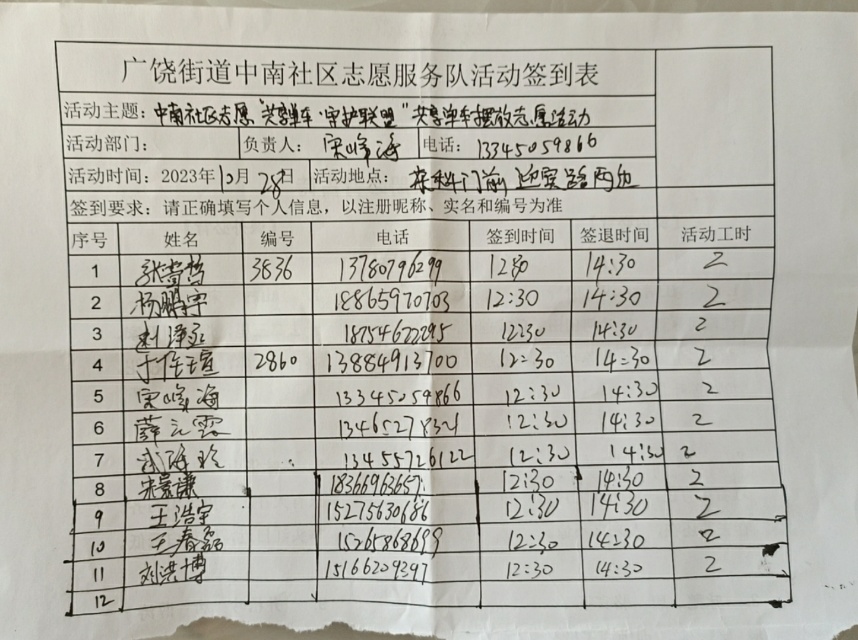 广饶街道中南社区志愿服务队活动签到表
活动主题：中南社区志愿“共享单车·守护联盟”共享单车摆放志愿活动
活动部门： 负责人：宋峰海 电话：13345059866
活动时间：2023年10月28日 活动地点：门前 迎宾路两边
签到要求：请正确填写个人信息，以注册昵称、实名和编号为准
序号 姓名 编号 电话 签到时间 签退时间 活动工时
1 3836 13780796299 14:30 2
2 杨鹏宇 18865970703 12:30 14:30 2
3 18754622295 12:30 14:30 2
4 2860 13884913700 12:30 14:30 2
5 宋峰海 13345059866 12:30 14:30 2
6 薛元霞 13465278321 12:30 14:30 2
7 13455726122 12:30 14:30 2
8 18366963657 12:30 14:30 2
9 王浩宇 15275630686 12:30 14:30 2
10 王春磊 15265868699 12:30 14:30 2
11 刘洪博 15166209297 12:30 14:30 2
12